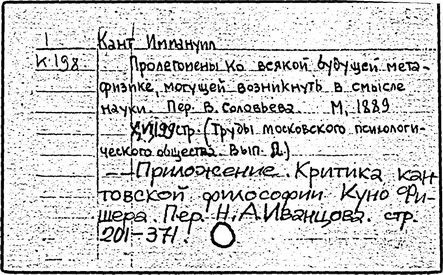 1 Кант Иммануил
К.198 Пролегомены ко всякой будущей мета-
физике, могущей возникнуть в смысле
науки. Пер. В. Соловьева. М, 1889
стр. (Труды московского психологи-
ческого общества. Вып. 2.)
— Приложение. Критика кан-
товской философии Куно Фи-
шера. Пер. Н.А.Иванцова. стр.
201-371.